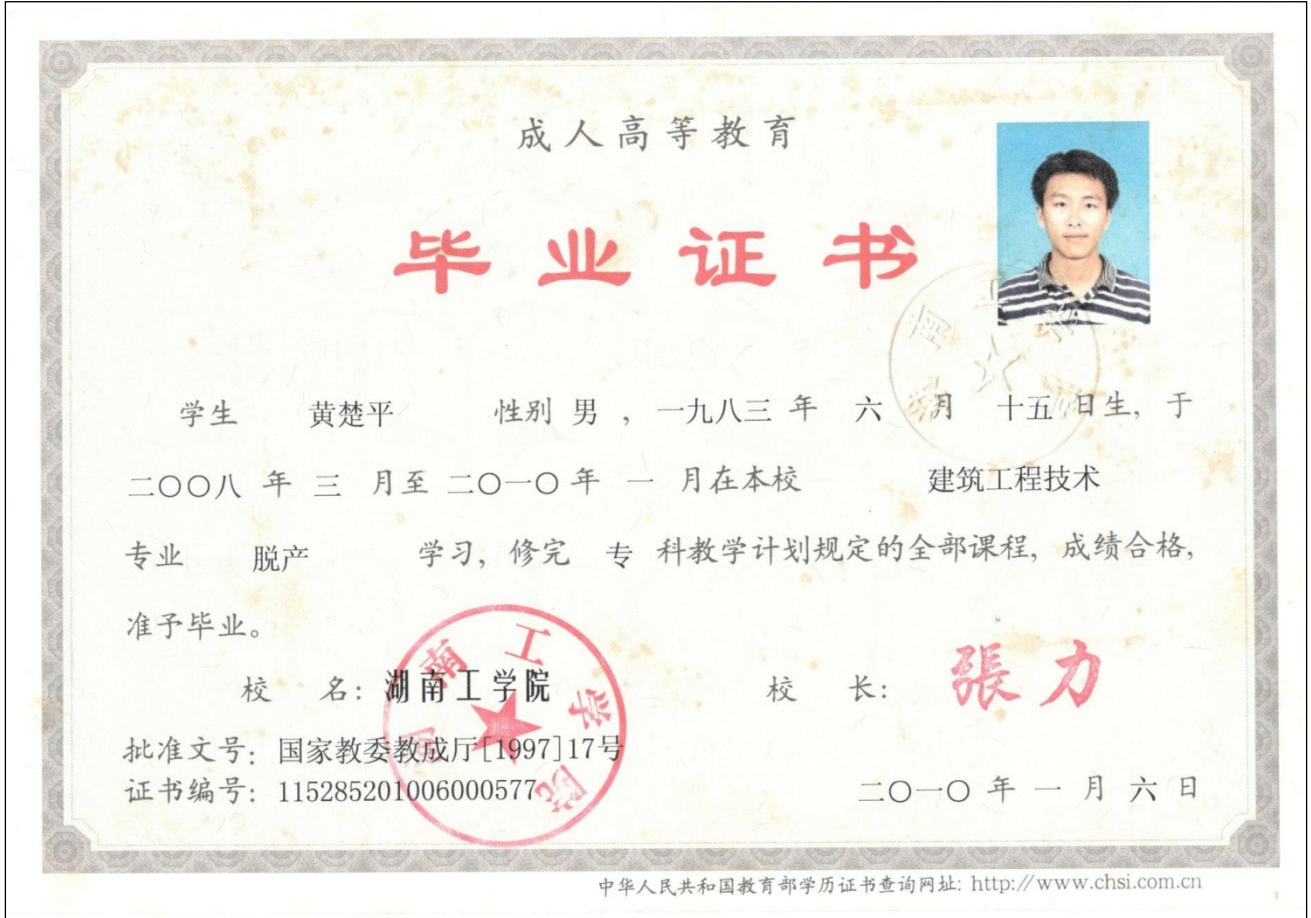 成人高等教育
毕业证书
学生 黄楚平 性别 男 ,一九八三 年 六 月 十五 日生,于
二〇〇八 年 三 月至 二〇一〇 年 一 月在本校 建筑工程技术
专业 脱产 学习,修完 专 科教学计划规定的全部课程,成绩合格,
准予毕业。
校 名:湖南工学院 校 长:張力
湖南工学院
批准文号:国家教委教成厅[1997]17号
证书编号:115285201006000577 二〇一〇 年 一 月 六 日
中华人民共和国教育部学历证书查询网址: http://www.chsi.com.cn